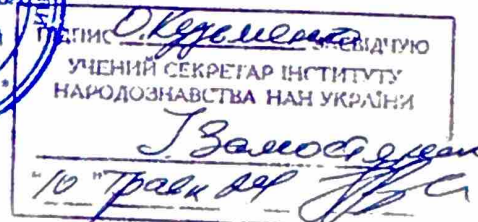 ПІДПИС О.Кузьменко ЗАСВІДЧУЮ
УЧЕНИЙ СЕКРЕТАР ІНСТИТУТУ
НАРОДОЗНАВСТВА НАН УКРАЇНИ
"10" травн